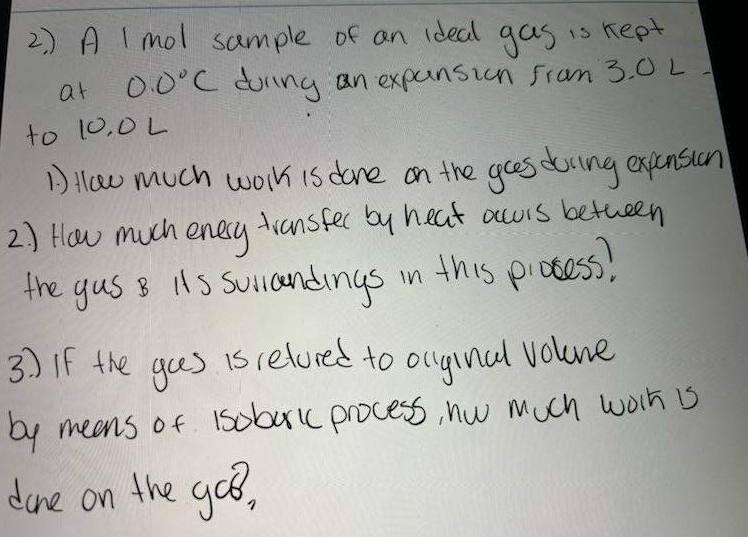 2.) A 1 mol sample of an ideal gas is kept
at 0.0°C during an expansion from 3.0 L
to 10.0 L
1.) How much work is done on the gas during expansion
2.) How much enery transfer by heat occurs between
the gas & its surroundings in this process?
3.) If the gas is retured to original volume
by means of isobaric process, hw much work is
done on the gas?